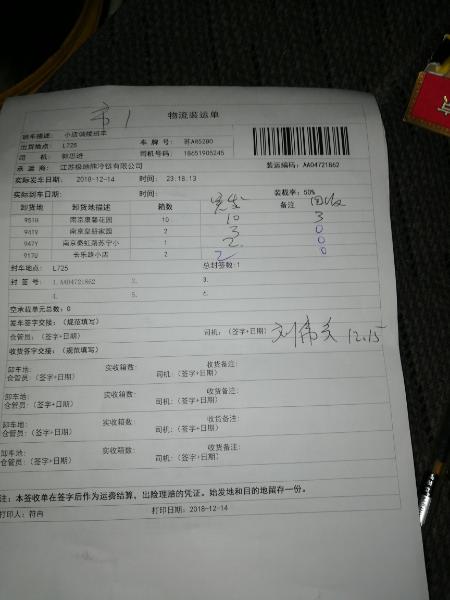 市1
物流装运单
班车描述: 小店领班车
出货地点: L725 车牌号: 苏A85280
司 机: 郭思进 司机号码: 18651905245
承运商: 江苏极地熊冷链有限公司 装运编码: AA04721862
实际发车日期: 2018-12-14 时间: 23.18.13
实际到车日期: 时间: 装载率: 50%
卸货地 卸货地描述 箱数 备注 回收
951H 南京康馨花园 10 10 3
941V 南京皇册家园 2 3 0
947Y 南京秦虹路苏宁小 1 2 0
917U 长乐路小店 2 2 0
封车地点: L725 总封签数:1
封 签 号: 1.AA04721862 2. 3.
4. 5.
空承载单元总数: 0
发车签字交接: (规范填写)
仓管员: (签字+日期) 司机: (签字+日期) 12.15
收货签字交接: (规范填写)
卸车地: 实收箱数: 收货备注:
仓管员: (签字+日期) 司机: (签字+日期)
卸车地: 实收箱数: 收货备注:
仓管员: (签字+日期) 司机: (签字+日期)
卸车地: 实收箱数: 收货备注:
仓管员: (签字+日期) 司机: (签字+日期)
卸车地: 实收箱数: 收货备注:
仓管员: (签字+日期) 司机: (签字+日期)
注: 本签收单在签字后作为运费结算、出险理赔的凭证。始发地和目的地留存一份。
打印人: 符冉 打印日期: 2018-12-14